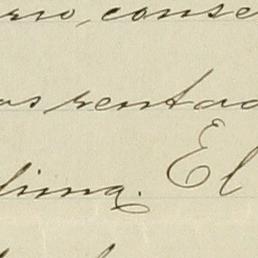 rno, conse
as rentad
lima. El